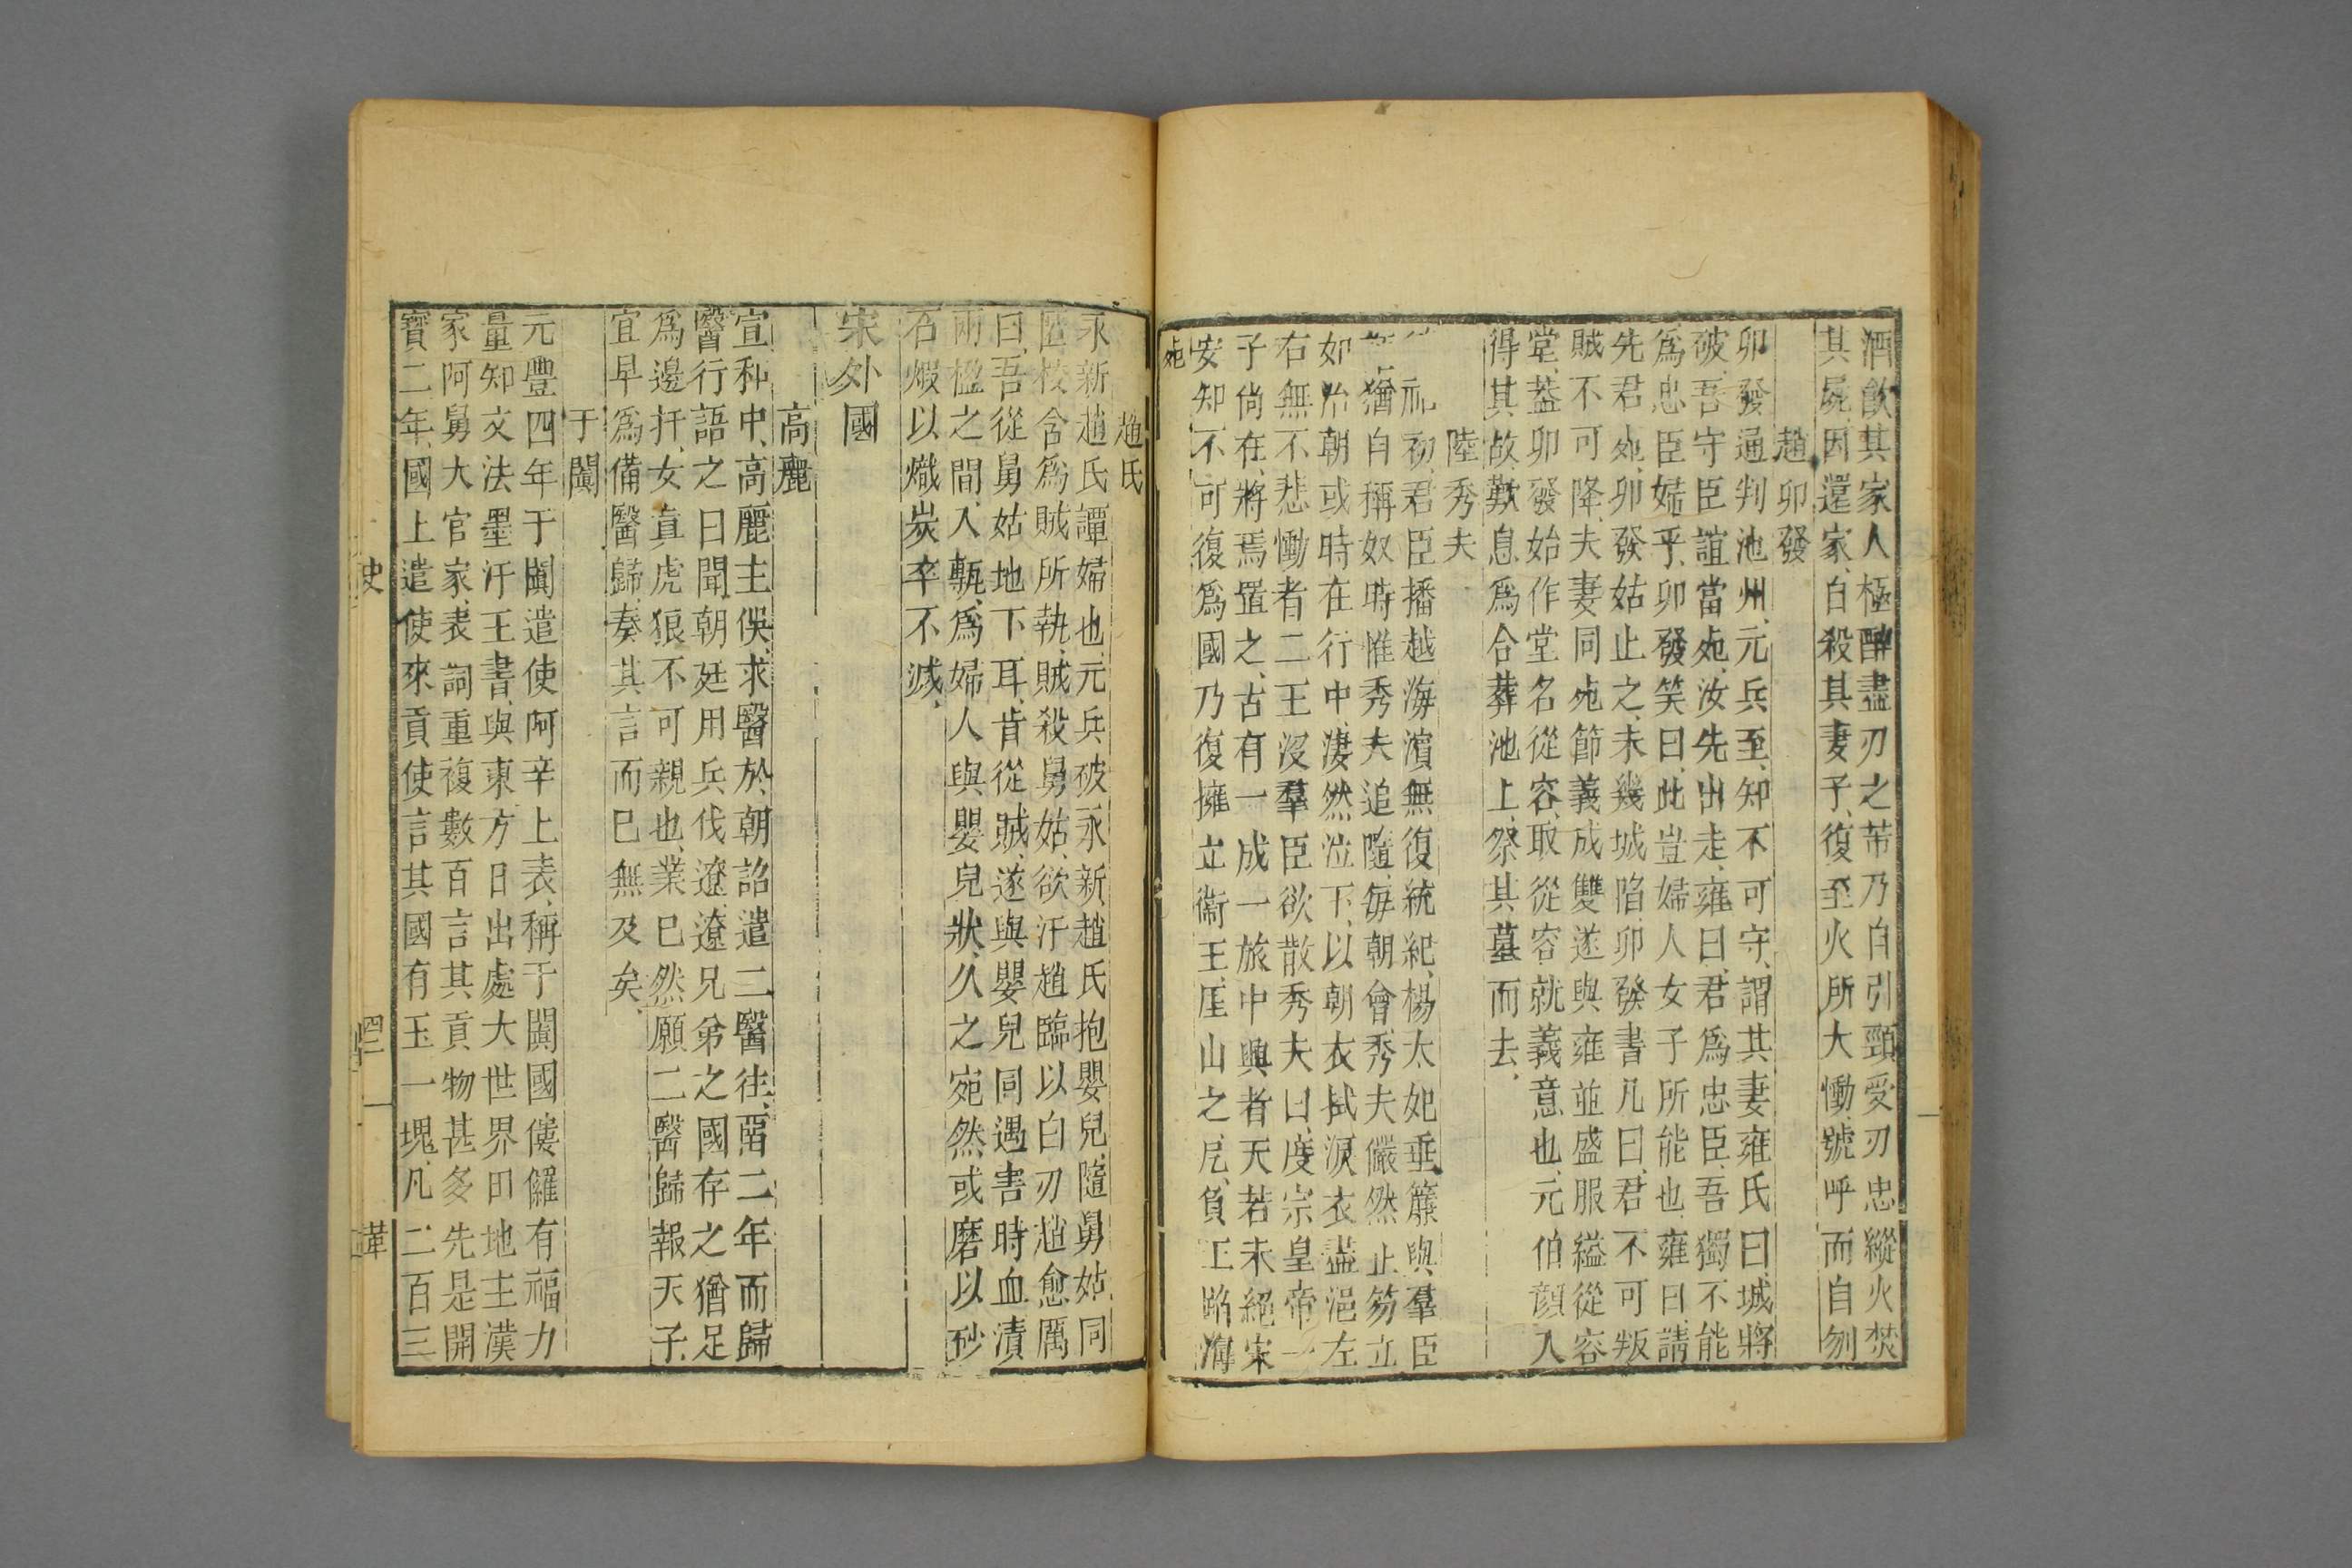 酒飲其家人極醉盡刃之芾乃自引頸受刃忠縱火焚
其屍因還家自殺其妻子復至火所大慟號呼而自刎
趙卯發
卯發通判池州元兵至知不可守謂其妻雍氏曰城將
破吾守臣誼當死汝先出走雍曰君爲忠臣吾獨不能
爲忠臣婦乎卯發笑曰此豈婦人女子所能也雍曰請
先君死卯發姑止之未幾城陷卯發書凡曰君不可叛
賊不可降夫妻同死節義成雙遂與雍並盛服縊從容
堂葢卯發始作堂名從容取從容就義意也元伯顔入
得其故歎息爲合葬池上祭其墓而去
陸秀夫
初君臣播越海濵無復統紀楊太妃垂簾與羣臣
猶自稱奴時惟秀夫追隨每朝會秀夫儼然止笏立
如治朝或時在行中淒然泣下以朝衣拭淚衣盡浥左
右無不悲慟者二王没羣臣欲散秀夫曰度宗皇帝一
子尚在將焉置之古有一成一旅中興者天若未絕宋
安知不可復爲國乃復擁立衞王厓山之戹負王蹈海
死
趙氏
永新趙氏譚婦也元兵破永新趙氏抱嬰兒隨舅姑同
匿校舍爲賊所執賊殺舅姑欲汙趙臨以白刃趙愈厲
曰吾從舅姑地下耳肯從賊遂與嬰兒同遇害時血漬
兩楹之間入甎爲婦人與嬰兒狀久之宛然或磨以砂
石煅以熾炭卒不滅
宋外國
高麗
宣和中高麗主俣求醫於朝詔遣二醫往畱二年而歸
醫行語之曰聞朝廷用兵伐遼遼兄弟之國存之猶足
爲邊扞女真虎狼不可親也業已然願二醫歸報天子
宜早爲備醫歸奏其言而已無及矣
于闐
元豐四年于闐遣使阿辛上表稱于闐國僂儸有福力
量知文法墨汗王書與東方日出處大世界田地主漢
家阿舅大官家表詞重複數百言其貢物甚多先是開
寶二年國上遣使來貢使言其國有玉一塊凡二百三
史
四二
一
革